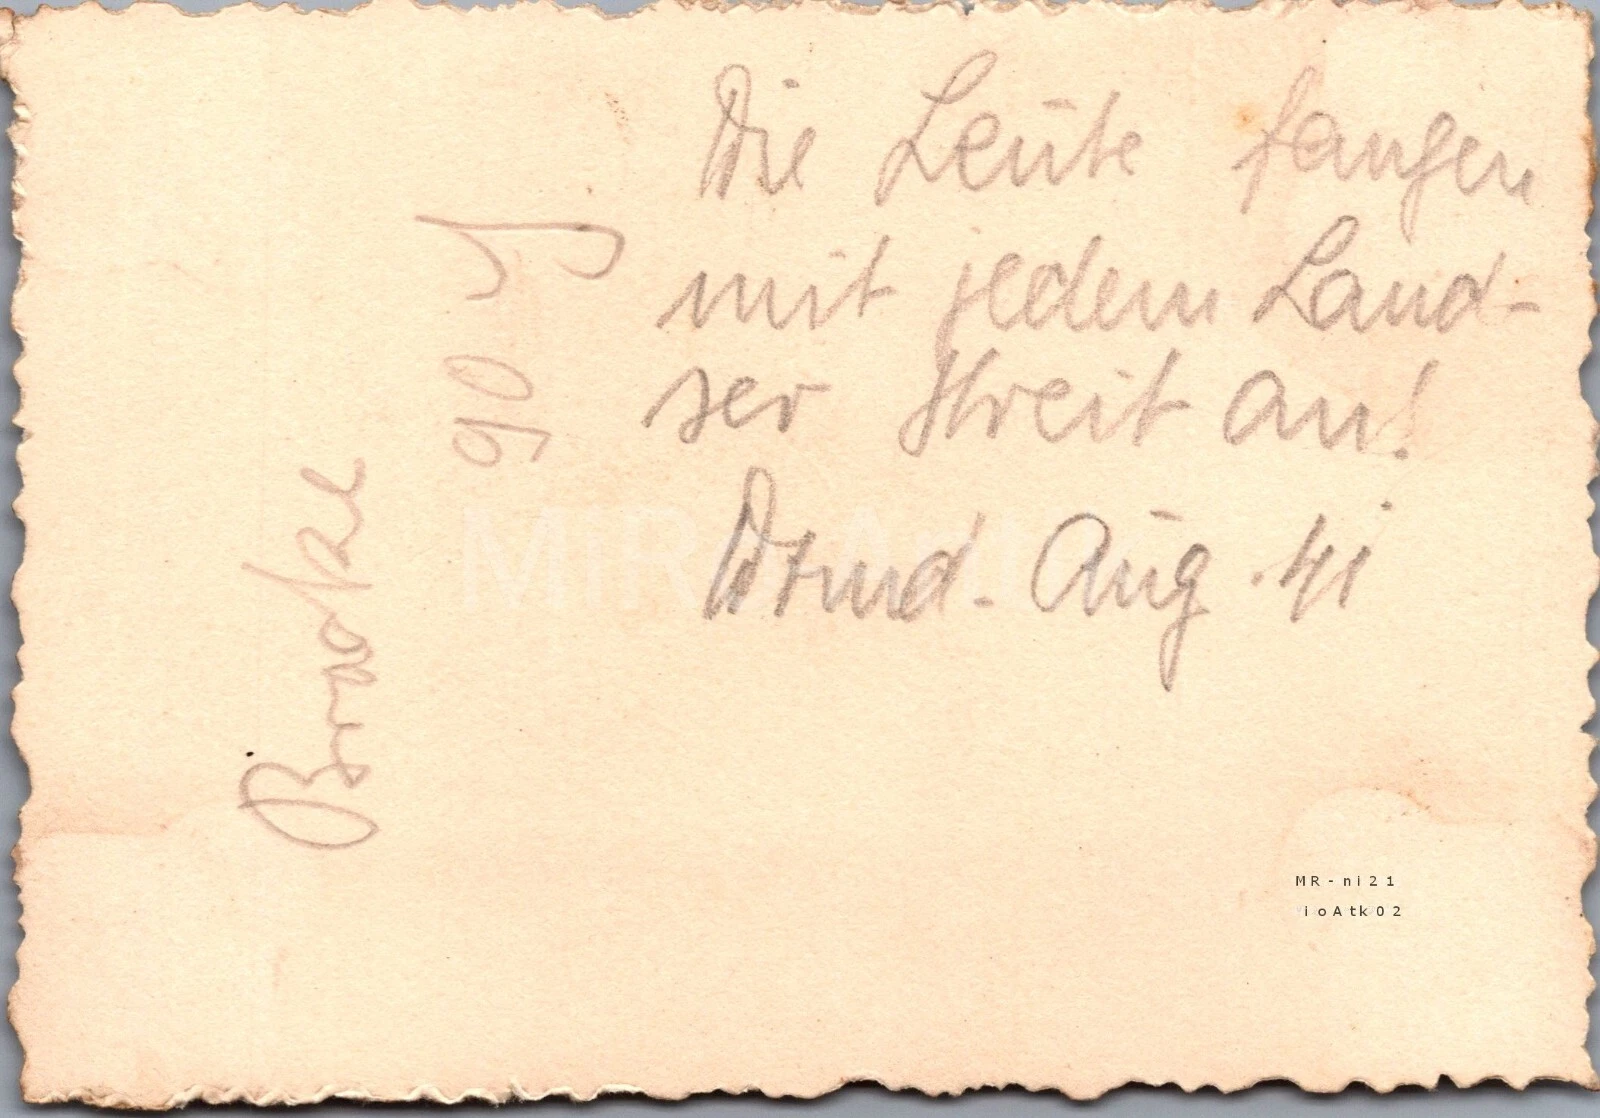 Die Leute fangen
mit jedem Land-
ser Streit an!
Dtmd. Aug. 41
Bracke
90
MR-ni21
ioAtk02